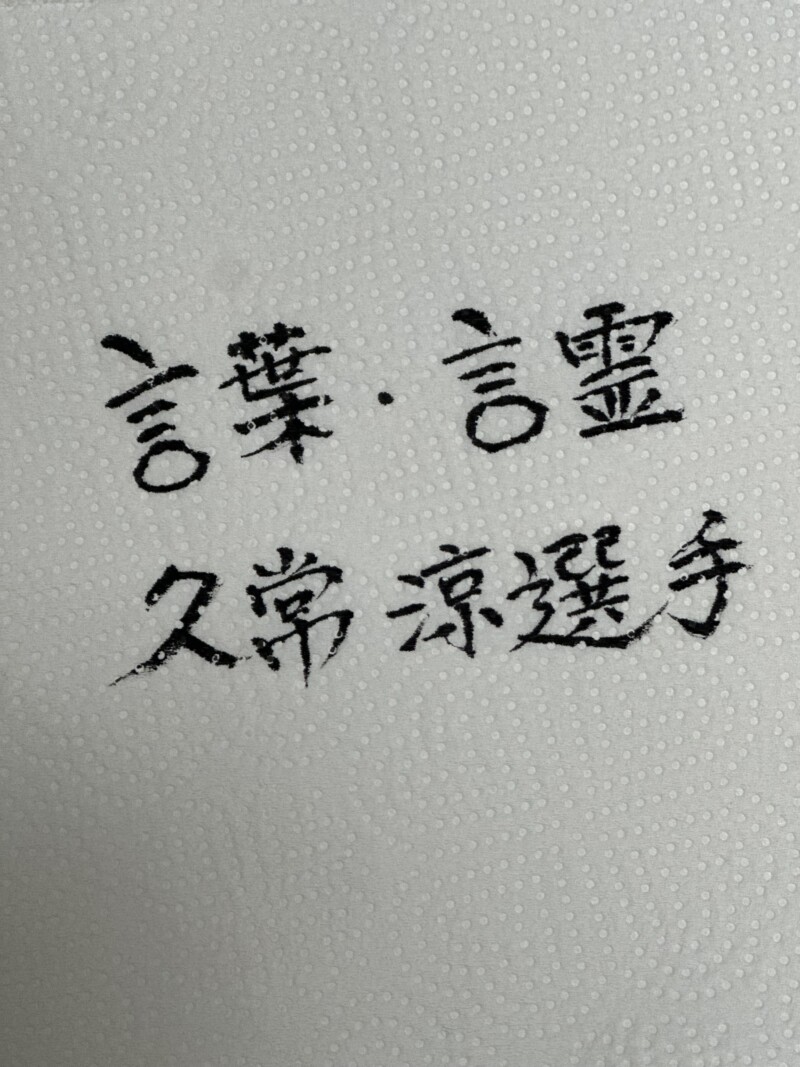 言葉・言霊
久常 涼選手